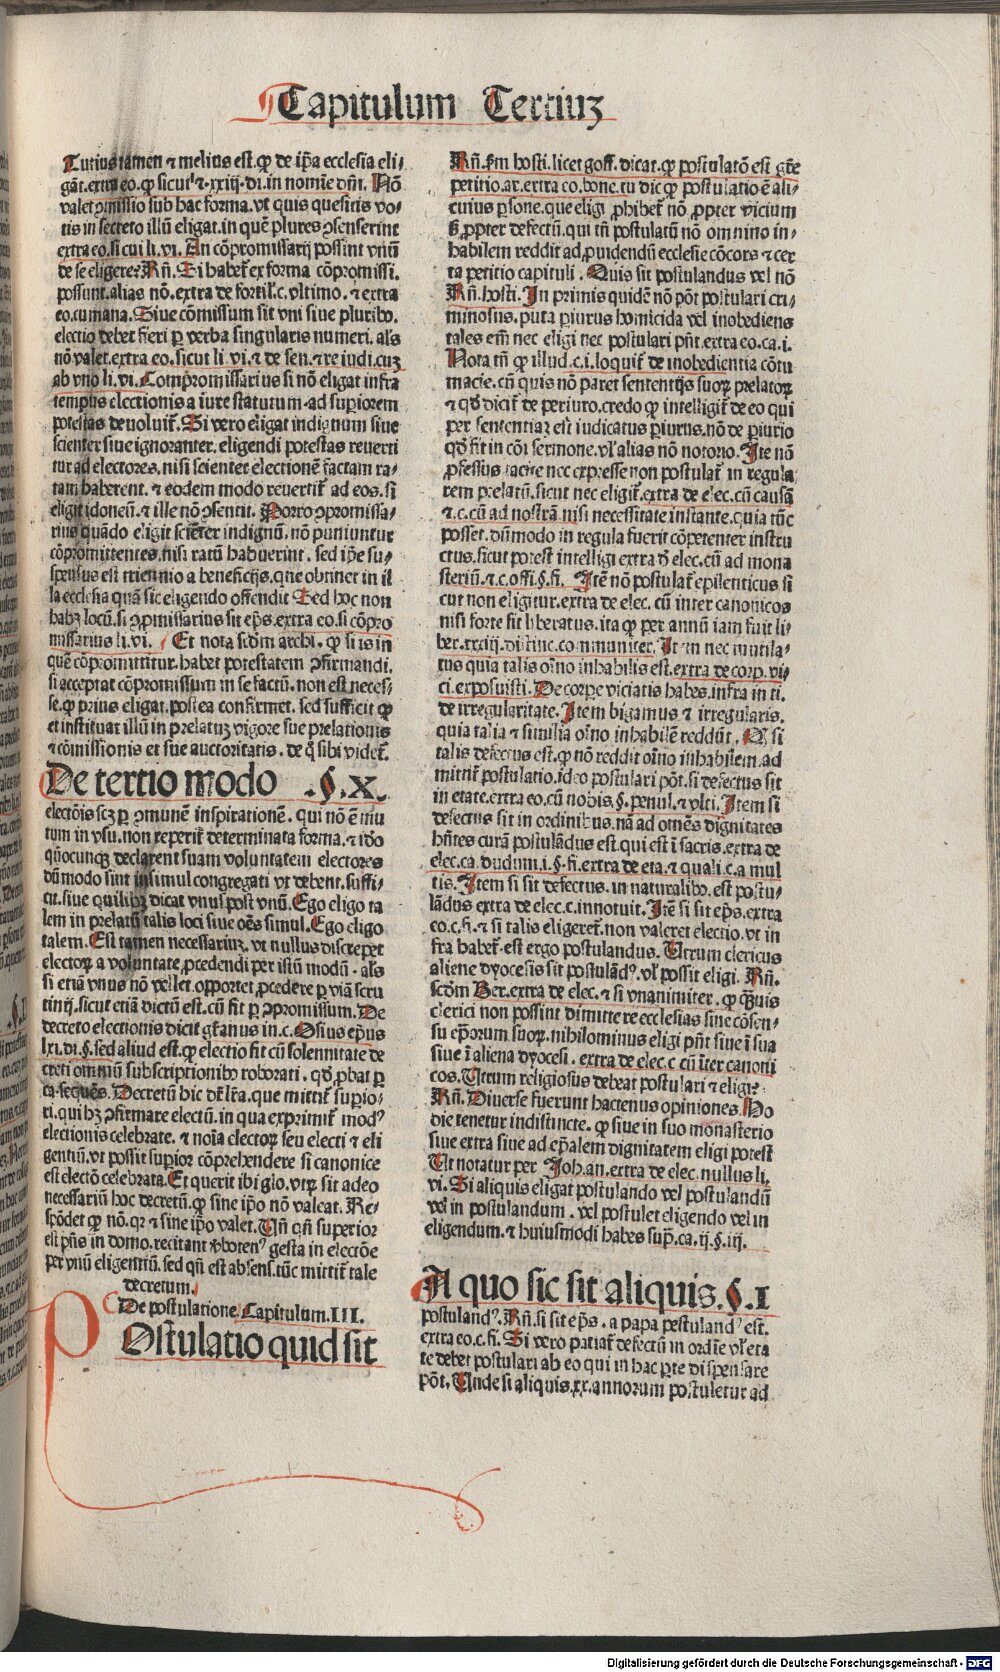 Capitulum Tertiuꝫ
Tutius tamen ⁊ melius est. ꝙ de ip̄a ecclesia eli-
gāt. extra eo. ꝙ sicut ⁊. xxiij. di. in nomīe dn̄i. Nō
valet ꝯmissio sub hac forma. vt quis quesitis vo-
tis in secreto illū eligat. in quē plures ꝯsenserint
extra eo. si cui li. vi. An cōpromissarij possint vnū
de se eligere? Rn̄. Si habet̄ ex forma cōpromissi.
possunt. alias nō. extra de
eo. cumana. Siue cōmissum sit vni siue pluribꝰ.
electio debet fieri ꝑ verba singularis numeri. als
nō valet. extra eo. sicut li. vi. ⁊ de sen. ⁊ re iudi. cuꝫ
ab vno li. vi. Compromissarius si nō eligat infra
tempus electionis a iure statutum. ad suꝑiorem
potestas deuoluit̄. Si vero eligat indignum siue
scienter siue ignoranter. eligendi potestas reuerti
tur ad electores. nisi scienter electionē factam ra-
tam haberent. ⁊ eodem modo reuertit̄ ad eos. si
eligit idoneū. ⁊ ille nō ꝯsentit. Porro ꝯpromissa-
rius quādo eligit sciēter indignū. nō puniuntur
cōpromittentes. nisi ratū habuerint. sed ip̄e su-
spensus est triennio a beneficijs. que obtinet in il
la ecclesia quā sic eligendo offendit Sed hoc non
habꝫ locū. si ꝯpromissarius sit ep̄s. extra eo. si cōpro
missarius li. vi. Et nota scdm archi. ꝙ si is in
quē cōpromittitur. habet potestatem ꝯfirmandi.
si acceptat cōpromissum in se factū. non est neces-
se. ꝙ prius eligat. postea confirmet. sed sufficit ꝙ
et instituat illū in prelatuꝫ vigore sue prelationis
⁊ cōmissionis et sue auctoritatis. de q̄ sibi videt̄.
De tertio modo .§. X.
electōis scꝫ ꝑ ꝯmunē inspirationē. qui nō ē mu
tum in vsu. non reperit̄ determinata forma. ⁊ ido
qn̄ocunqꝫ declarent suam voluntatem electores
dū modo sint insimul congregati vt debent. suffi-
cit. siue quilibꝫ dicat vnus post vnū. Ego eligo ta
lem in prelatū talis loci siue oēs simul. Ego eligo
talem. Est tamen necessariuꝫ. vt nullus discrepet
electoꝝ a voluntate ꝓcedendi per istū modū. als
si etiā vnus nō vellet. oꝑportet ꝓcedere ꝑ viā scru
tinij. sicut etiā dictū est. cū fit ꝑ ꝯpromissum. De
decreto electionis dicit gr̄anus in. c. Osius ep̄us
lxi. di. §. sed aliud est. ꝙ electio fit cū solennitate de
creti omniū subscriptionibꝰ roborati. qd̄ ꝓbat ꝑ
ca. sequēs. Decretū hic dr̄ lr̄a. que mittit̄ suꝑio-
ri. qui hꝫ ꝯfirmare electū. in qua exprimit̄ modꝰ
electionis celebrate. ⁊ noīa electoꝝ seu electi ⁊ eli
gentiū. vt possit suꝑior cōprehendere si canonice
est electō celebrata. Et querit ibi glo. vtꝝ sit adeo
necessariū hoc decretū. ꝙ sine ip̄o nō valeat. Re-
spōdet ꝙ nō. qꝛ ⁊ sine ip̄o valet. Un̄ qn̄ superior
est p̄ns in domo. recitant̄ gesta in electōe
per vnū eligentiū. sed qn̄ est absens. tūc mittit̄ tale
decretum.
De postulatione Capitulum. III.
POstulatio quid sit
Rn̄. scdm hosti. licet goff. dicat. ꝙ postulatō est
petitio. ar. extra eo. bone. tu dic ꝙ postulatio ē ali-
cuius ꝑsone. que eligi ꝓhibet̄ nō ꝓpter vicium
sꝫ ꝓpter defectū. qui tn̄ postulatū nō omnino in-
habilem reddit ad ꝓuidendū ecclesie cōcors ⁊ cer
ta petitio capituli. Quis sit postulandus vel nō
Rn̄. hosti. In primis quidē nō pōt postulari cri-
minosus. puta ꝑiurus homicida vel inobediens
tales em̄ nec eligi nec postulari pn̄t. extra eo. ca. i.
Nota tn̄ ꝙ illud. c. i. loquit̄ de inobedientia cōtu
macie. cū quis nō paret sententijs suoꝝ prelatoꝝ
⁊ qd̄ dicit̄ de periuro. credo ꝙ intelligit̄ de eo qui
per sententiaꝫ est iudicatus ꝑiurus. nō de ꝑiurio
qd̄ fit in cōi sermone. vl̓ alias nō notorio. Ite nō
ꝓfessus tacite nec expresse non postulat̄ in regula
rem prelatū. sicut nec eligit̄. extra de elec. cū causā
⁊. c. cū ad nostrā. nisi necessitate instante. quia tūc
posset. dū modo in regula fuerit cōpetenter instru
ctus. sicut potest intelligi extra de elec. cū ad mona
steriū. ⁊. c. offi. §. fi. Itē nō postulat̄ epilenticus si
cut non eligitur. extra de elec. cū inter canonicos
nisi forte sit liberatus. ita ꝙ per annū iam fuit li-
ber. xxxiij. distinc. communiter. Item nec mutila-
tus quia talis oīno inhabilis est. extra de corp. vi-
ci. exposuisti. De corpe viciatis habes. infra in ti.
de irregularitate. Item bigamus ⁊ irregularis.
quia talia ⁊ similia oīno inhabilē reddūt. Qꝛ si
talis defectus est. ꝙ nō reddit oīno inhabilem. ad
mittit̄ postulatio. ideo postulari pōt. si defectus sit
in etate. extra eo. cū nobis. §. penul. ⁊ vlti. Item si
defectus sit in ordinibus. nā ad omēs dignitates
hn̄tes curā postulādus est. qui est ī sacris. extra de
elec. ca. dudum. i. §. fi. extra de eta. ⁊ quali. c. a mul
tis. Item si sit defectus. in naturalibꝰ. est postu-
lādus extra de elec. c. innotuit. Itē si sit ep̄s. extra
eo. c. fi. ⁊ si talis eligeret̄. non valeret electio. vt in
fra habet̄. est ergo postulandus. Utrum clericus
aliene dyocesis sit postulādꝰ. vl̓ possit eligi. Rn̄.
scdm Ber. extra de elec. ⁊ si vnanimiter. ꝙ qꝫuis
clerici non possint dimittere ecclesias sine cōsen-
su ep̄orum suoꝝ. nihilominus eligi pn̄t siue ī sua
siue ī aliena dyocesi. extra de elec. c cū īter canoni
cos. Utrum religiosus debeat postulari ⁊ eligi?
Rn̄. Diuerse fuerunt hactenus opiniones. Ho
die tenetur indistincte. ꝙ siue in suo monasterio
siue extra siue ad ep̄alem dignitatem eligi potest
Ut notatur per Joh. an. extra de elec. nullus li.
vi. Si aliquis eligat postulando vel postulandū
vel in postulandum. vel postulet eligendo vel in
eligendum. ⁊ huiusmodi habes supra. ca. ij. §. iij.
A quo sic sit aliquis. §. I
postulandꝰ. Rn̄. si sit ep̄s. a papa postulandꝰ est.
extra eo. c. fi. Si vero patiat̄ defectū in ordīe vl̓ eta
te debet postulari ab eo qui in hac ꝑte dispensare
pōt. Unde si aliquis. xx. annorum postuletur ad
Digitalisierung gefördert durch die Deutsche Forschungsgemeinschaft - DFG